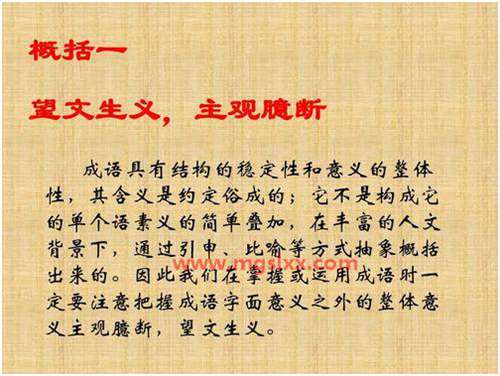 概括一
望文生义，主观臆断
成语具有结构的稳定性和意义的整体
性，其含义是约定俗成的；它不是构成它
的单个语素义的简单叠加，在丰富的人文
背景下，通过引申、比喻等方式抽象概括
出来的。因此我们在掌握或运用成语时一
www.mgslxx.com
定要注意把握成语字面意义之外的整体意
义主观臆断，望文生义。